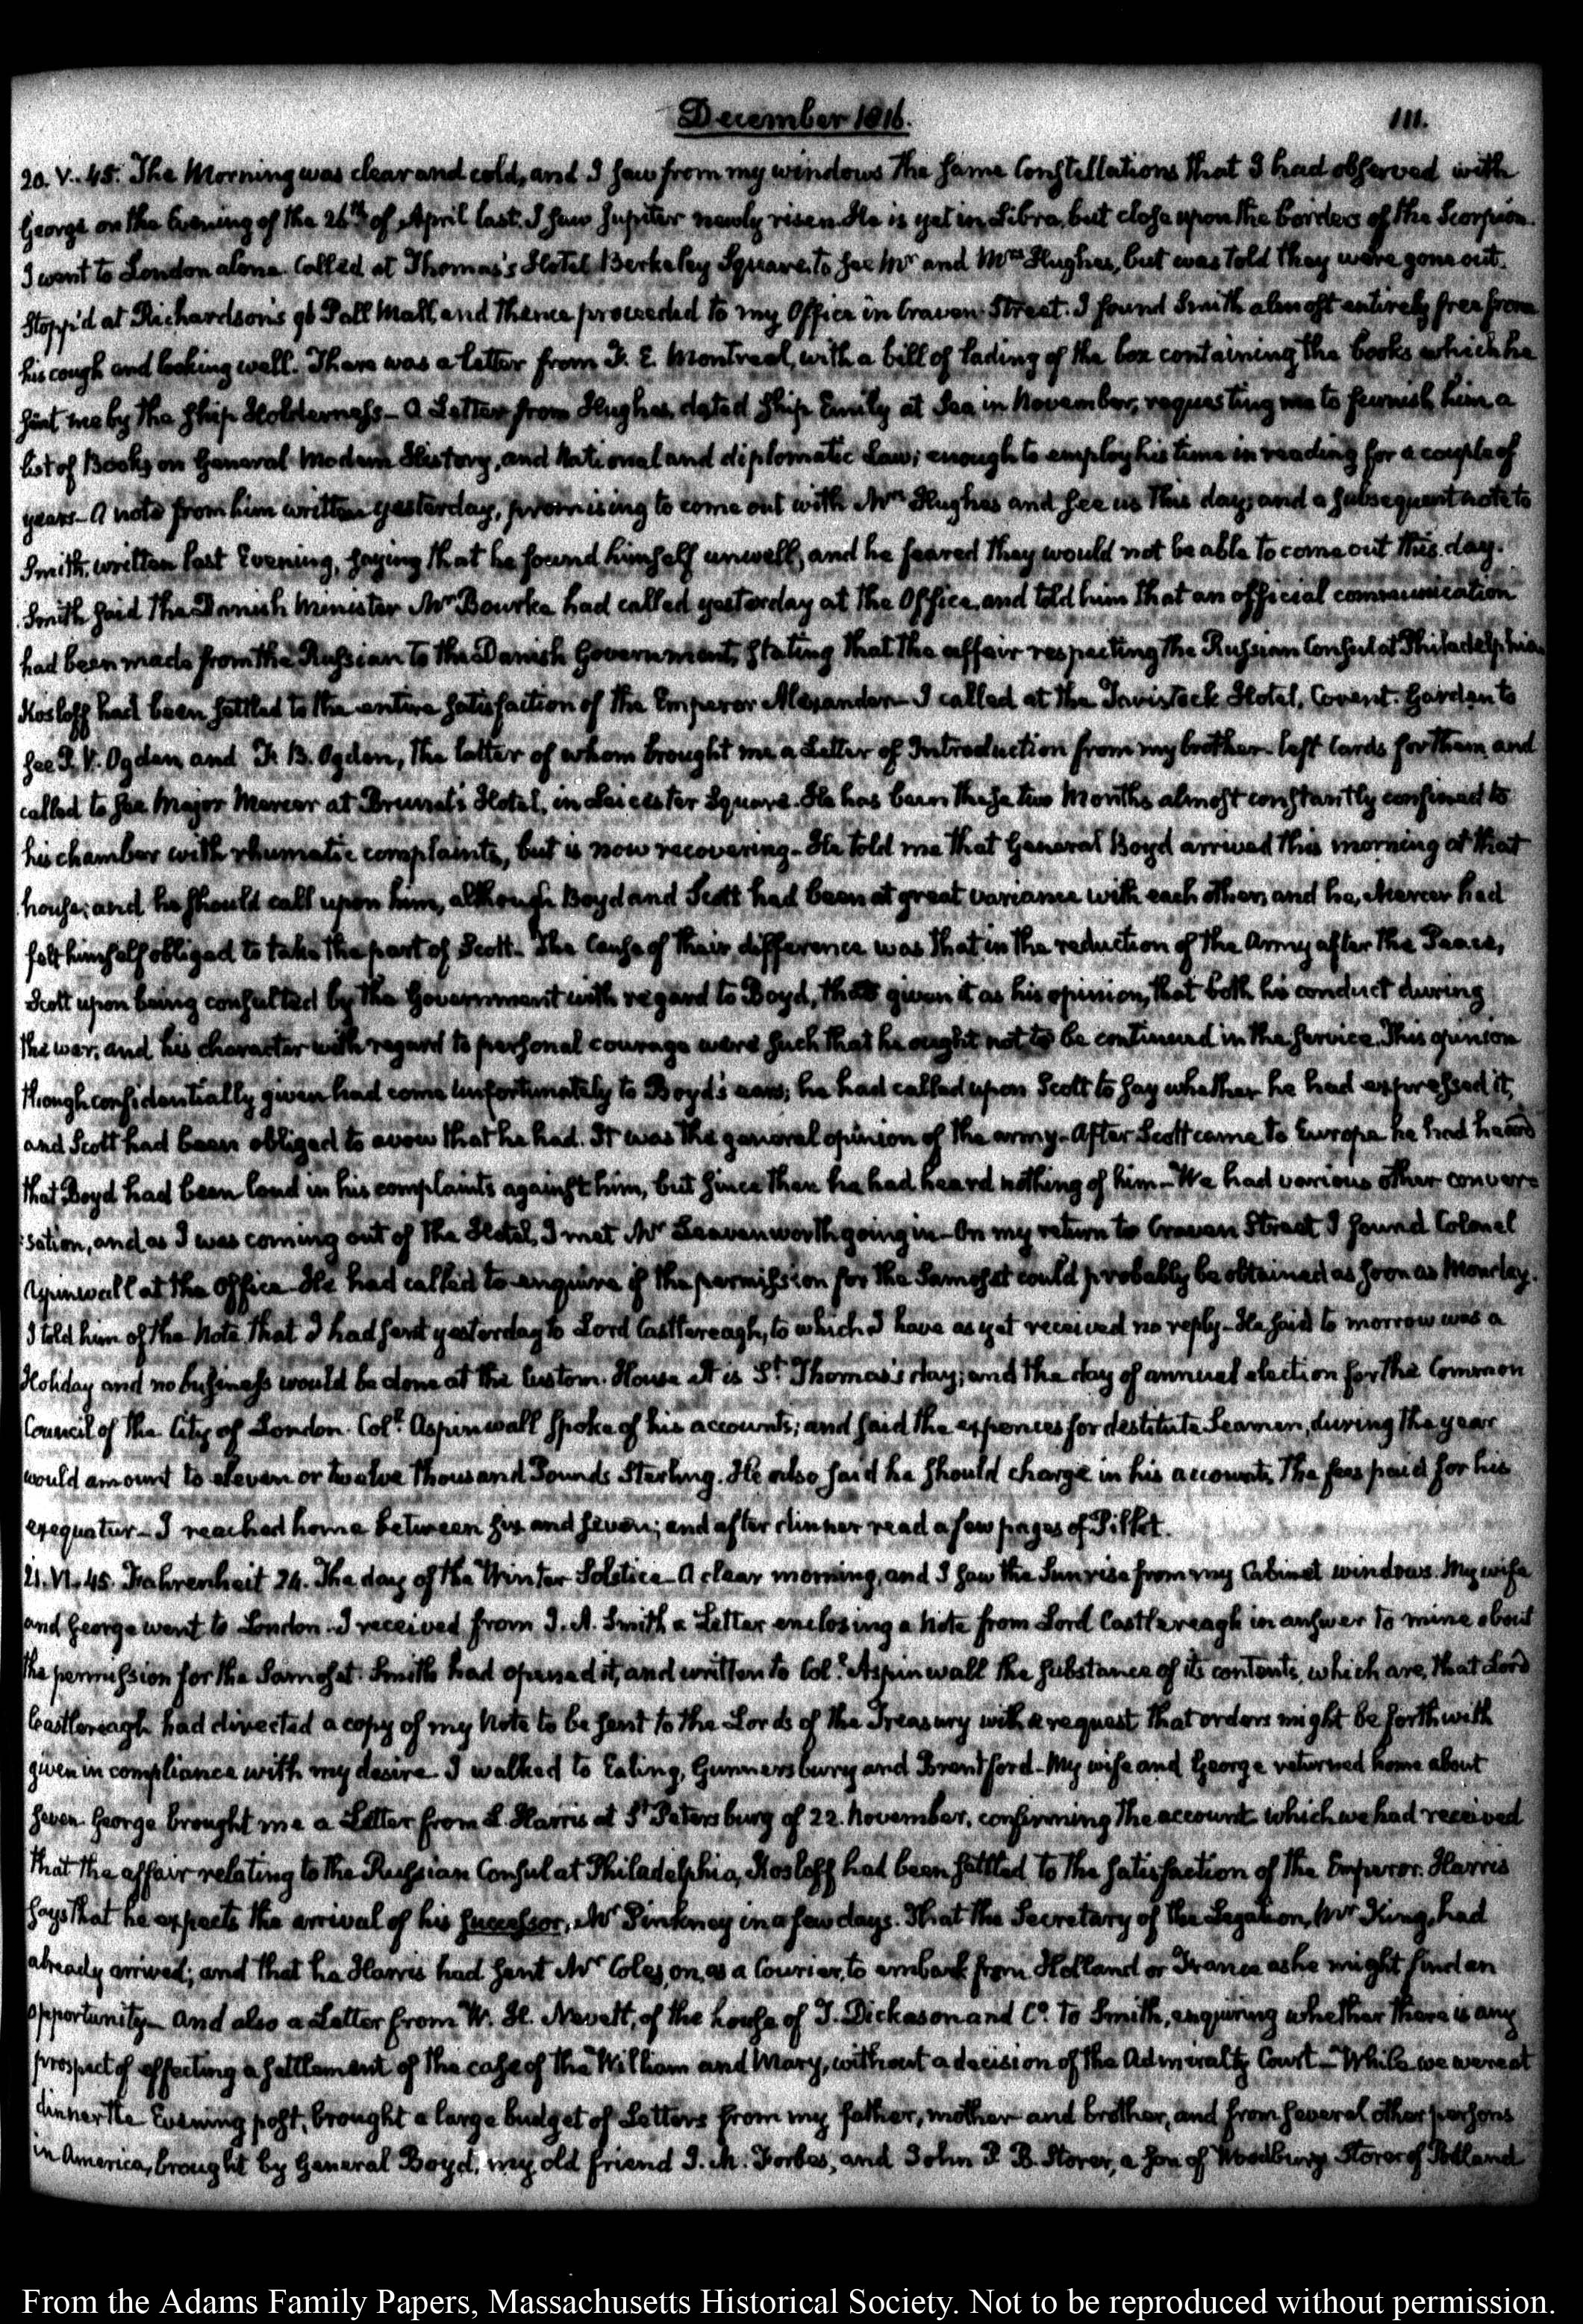 December 1816.
111.
20. V..45. The Morning was clear and cold, and I saw from my windows the same Constellations that I had observed with
George on the Evening of the 26th of April last. I saw Jupiter newly risen. He is yet in Libra, but close upon the borders of the Scorpion.
I went to London alone. Called at Thomas's Hotel Berkeley Square, to see Mr and Mrs Hughes, but was told they were gone out.
Stopp'd at Richardson's 96 Pall Mall, and thence proceeded to my Office in Craven Street. I found Smith almost entirely free from
his cough and looking well. There was a letter from F. E. Montreal, with a bill of lading of the box containing the books which he
sent me by the ship Holderness— A Letter from Hughes, dated ship Emily at Sea in November; requesting me to furnish him a
list of Books on General Modern History, and National and diplomatic Law; enough to employ his time in reading for a couple of
years— A note from him written yesterday, promising to come out with Mrs Hughes and see us this day; and a subsequent note to
Smith, written last Evening, saying that he found himself unwell, and he feared they would not be able to come out this day.
Smith said the Danish Minister Mr Bourke had called yesterday at the Office, and told him that an official communication
had been made from the Russian to the Danish Government, stating that the affair respecting the Russian Consul at Philadelphia
Kosloff had been settled to the entire satisfaction of the Emperor Alexander— I called at the Tavistock Hotel, Covent. Garden to
see P. V. Ogden and F. B. Ogden, the latter of whom brought me a Letter of Introduction from my brother— left Cards for them and
called to see Major Mercer at Brunet's Hotel, in Leicester Square. He has been these two Months almost constantly confined to
his chamber with rhumatic complaints, but is now recovering— He told me that General Boyd arrived this morning at that
house; and he should call upon him, although Boyd and Scott had been at great variance with each other, and he, Mercer had
felt himself obliged to take the part of Scott— The Cause of their difference was that in the reduction of the Army after the Peace,
Scott upon being consulted by the Government with regard to Boyd, had given it as his opinion, that both his conduct during
the war, and his character with regard to personal courage were such that he ought not to be continued in the service. This opinion
though confidentially given had come unfortunately to Boyd's ears; he had called upon Scott to say whether he had expressed it,
and Scott had been obliged to avow that he had. It was the general opinion of the army— After Scott came to Europe he had heard
that Boyd had been loud in his complaints against him, but since then he had heard nothing of him— We had various other conver=
=sation, and as I was coming out of the Hotel, I met Mr Leavenworth going in— On my return to Craven Street I found Colonel
Aspinwall at the Office— He had called to enquire if the permission for the Samoset could probably be obtained as soon as Monday.
I told him of the Note that I had sent yesterday to Lord Castlereagh, to which I have as yet received no reply— He said to morrow was a
Holiday and no business would be done at the Custom. House. It is St. Thomas's day; and the day of annual election for the Common
Council of the City of London. Coll. Aspinwall spoke of his accounts; and said the expences for destitute Seamen, during the year
would amount to eleven or twelve thousand Pounds Sterling. He also said he should charge in his accounts, the fees paid for his
exequatur— I reached home between six and seven; and after dinner read a few pages of Pillet.
21. VI..45. Fahrenheit 24. The day of the Winter Solstice— A clear morning, and I saw the Sun rise from my Cabinet windows. My wife
and George went to London. I received from J. A. Smith a Letter enclosing a Note from Lord Castlereagh in answer to mine about
the permission for the Samoset. Smith had opened it, and written to Coll. Aspinwall the substance of its contents, which are, that Lord
Castlereagh had directed a copy of my Note to be sent to the Lords of the Treasury with a request that orders might be forthwith
given in compliance with my desire— I walked to Ealing, Gunnersbury and Brentford— My wife and George returned home about
seven. George brought me a Letter from L. Harris at St Petersburg of 22. November, confirming the account which we had received
that the affair relating to the Russian Consul at Philadelphia, Kosloff had been settled to the satisfaction of the Emperor. Harris
says that he expects the arrival of his successor, Mr Pinkney in a few days. That the Secretary of the Legation, Mr King, had
already arrived; and that he Harris had sent Mr Coles, on, as a Courier, to embark from Holland or France as he might find an
opportunity— And also a Letter from W. H. Nevett, of the house of T. Dickason and Co. to Smith, enquiring whether there is any
prospect of effecting a settlement of the case of the William and Mary, without a decision of the Admiralty Court— While we were at
dinner the Evening post, brought a large budget of Letters from my father, mother and brother, and from several other persons
in America, brought by General Boyd, my old friend J. M. Forbes, and John P. B. Storer, a son of Woodbury Storer of Portland
From the Adams Family Papers, Massachusetts Historical Society. Not to be reproduced without permission.